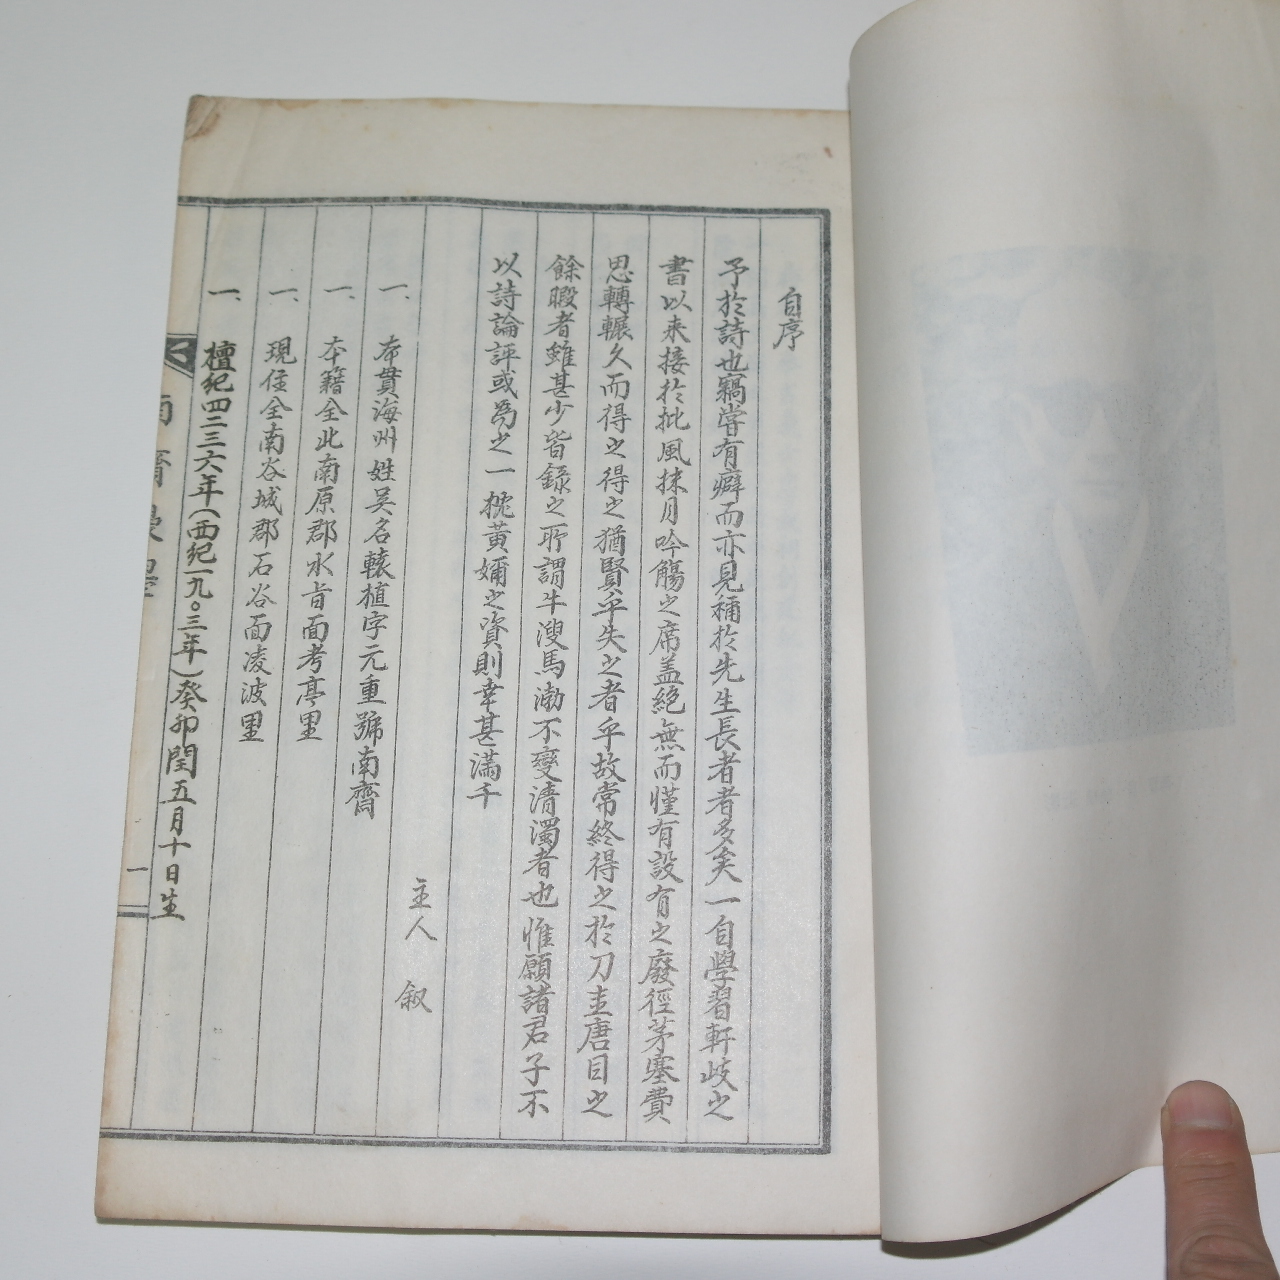 自序
予於詩也竊嘗有癖而亦見稱於先生長者者多矣一自學習軒岐之
書以来接於批風抹月吟觴之席盖絕無而僅有設有之廢徑茅塞費
思轉輾久而得之得之猶賢乎失之者乎故常終得之於刀圭唐目之
餘暇者雖甚少皆錄之所謂牛溲馬渤不變清濁者也惟願諸君子不
以詩論評或爲之一枕黃嬭之資則幸甚滿千
主人 叙
一、本貫海州姓吴名轅植字元重號南齋
一、本籍全北南原郡水旨面考亭里
一、現住全南谷城郡石谷面凌波里
一、檀紀四二三六年(西紀一九〇三年)癸卯閏五月十日生
一